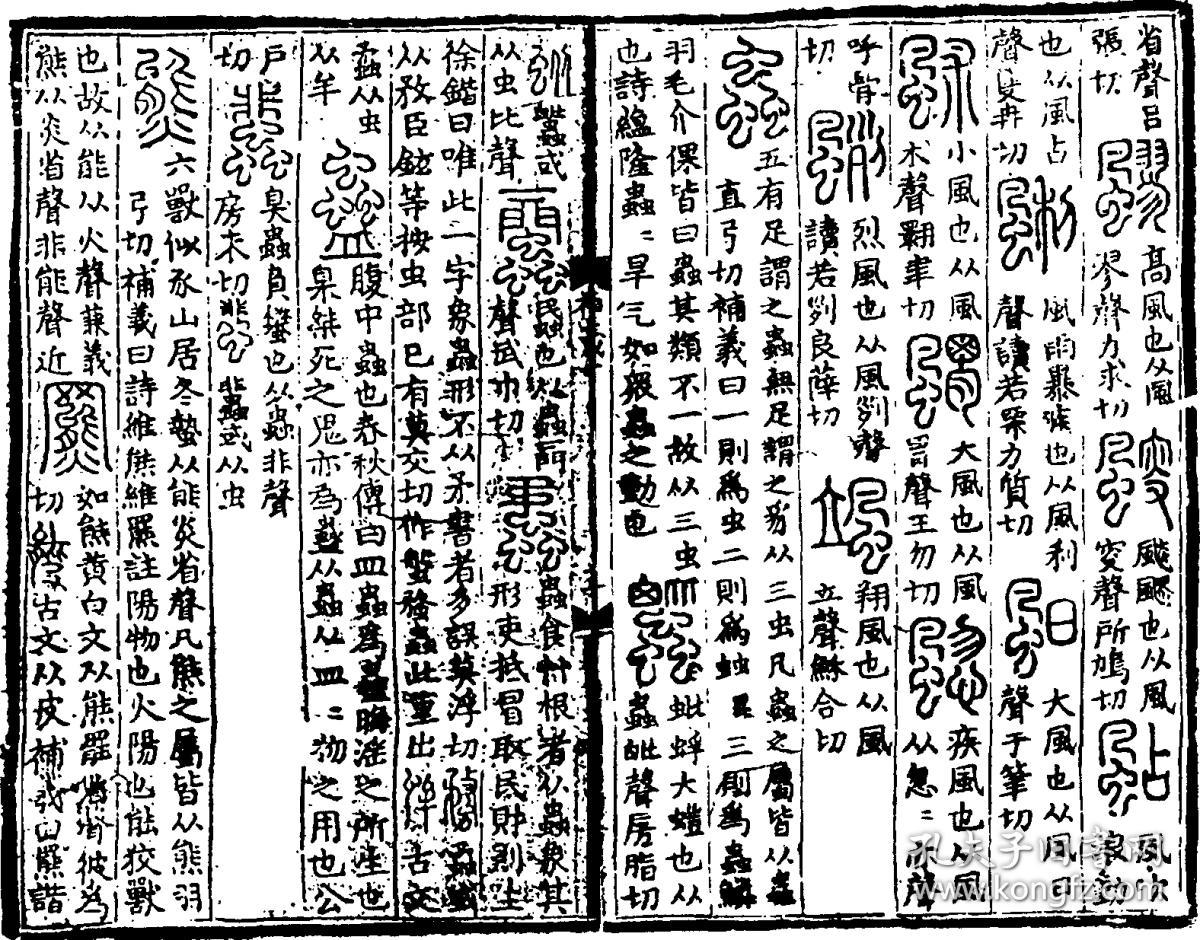 省聲呂張切
高風也从風翏聲力求切
颼飂也从風叜聲所鳩切
風吹
也从風占聲隻冉切
風雨暴疾也从風利聲讀若栗力質切
大風也从風日聲于筆切
小風也从風朮聲翾聿切
大風也从風胃聲王勿切
疾風也从風从忽忽亦聲呼骨切
烈風也从風𠛱聲讀若𠛱良薛切
翔風也从風立聲穌合切
五有足謂之蟲無足謂之豸从三虫凡蟲之屬皆从蟲直弓切補義曰一則爲虫二則爲䖵三則爲蟲鱗
羽毛介倮皆曰蟲其類不一故从三虫
也詩蘊隆蟲蟲旱气如蟲之動也
蚍蜉大螘也从蟲𣬉聲房脂切
蠶或从虫比聲
蟲也从蟲
聲武巾切
蟲食艸根者从蟲象其形吏抵冒取民財則生
徐鍇曰唯此一字象蟲形不从矛書者多誤莫浮切
从敄臣鉉等按虫部已有莫交切作蟹蝥蟲此重出
古文蟊从虫从牟
腹中蟲也春秋傳曰皿蟲爲蠱晦淫之所生也
臬桀死之鬼亦為蠱从蟲从皿皿物之用也公戶切
臭蟲負蠜也从蟲非聲房未切
蜚蟲或从虫
六獸似豕山居冬蟄从能炎省聲凡熊之屬皆从熊羽弓切補義曰詩維熊維羆註陽物也火陽也能狡獸
也故从能从火聲兼義
熊从炎省聲非能聲近
如熊黃白文从熊罷省聲彼為切
古文从皮補義曰羆諧
孔夫子旧書网
www.kongfz.com